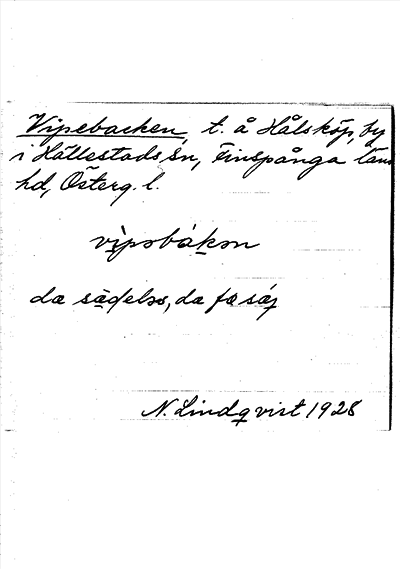 Vipebacken, t. å Hålsköp, by
i Hällestads sn, Finspånga läns
hd, Österg. l.
vi̱pəbákən
N. Lindqvist 1928